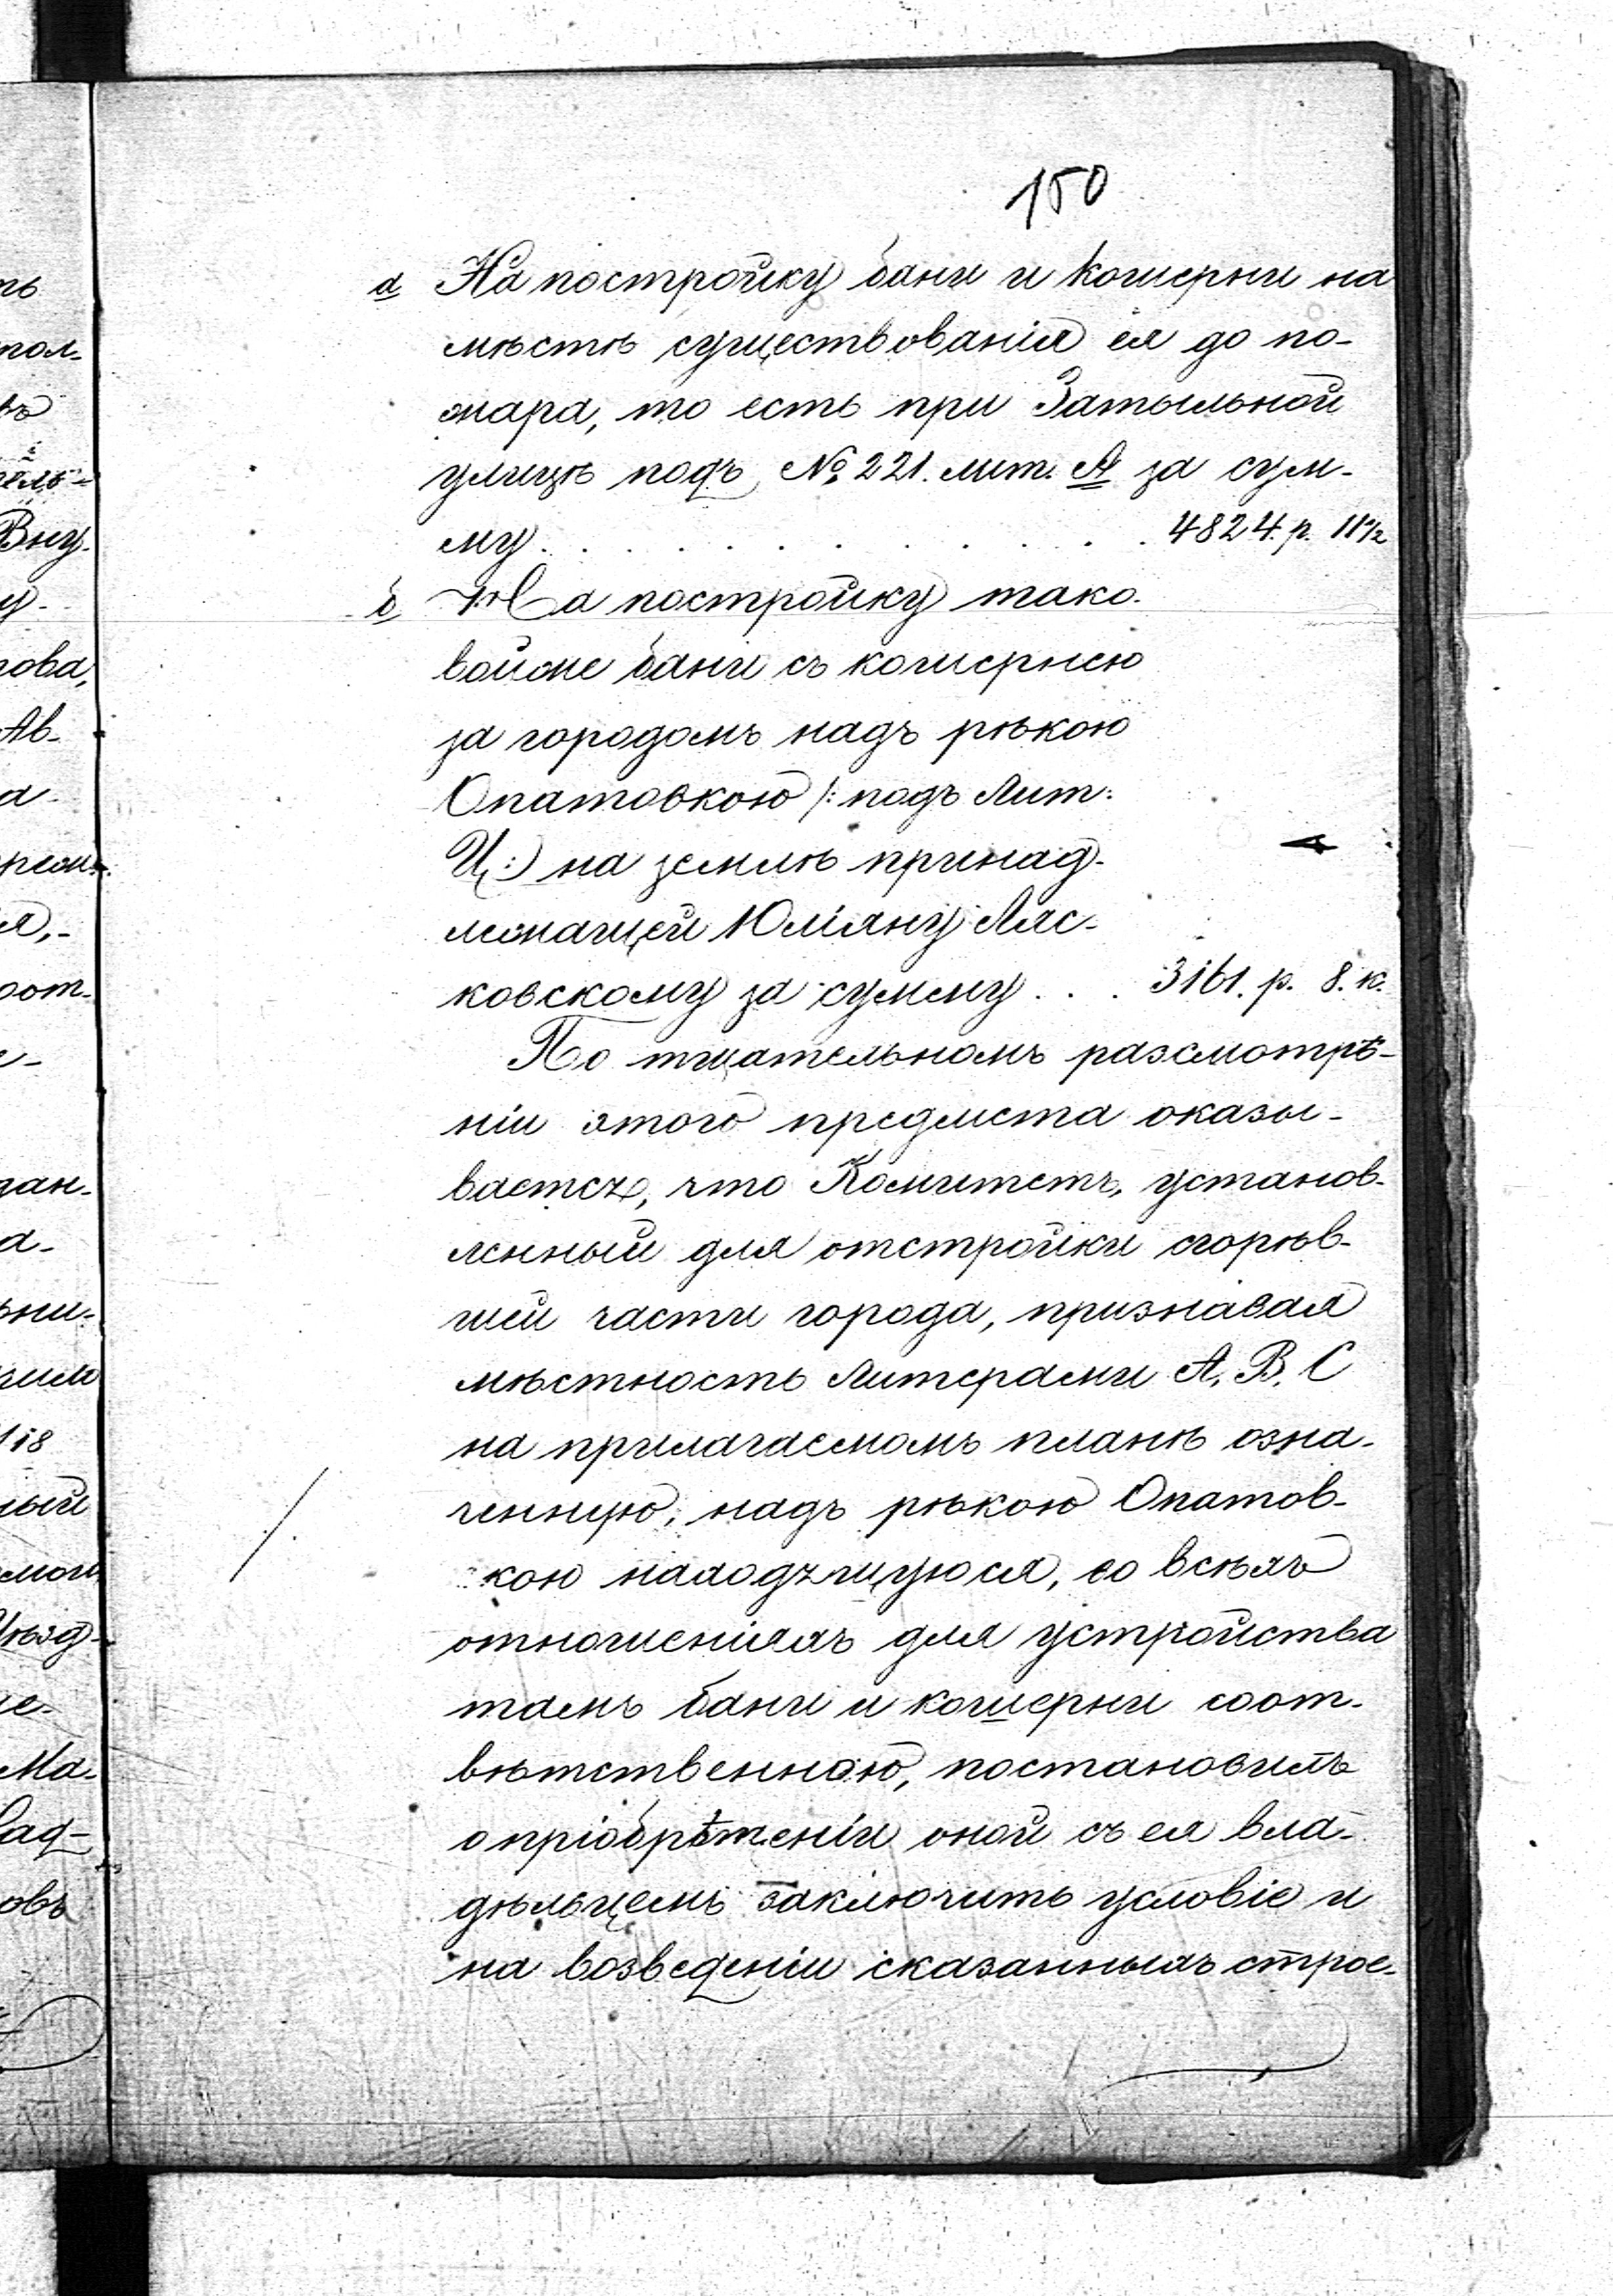 150
а На постройку бани и кошерни на
мѣстѣ существованія ея до по-
жара, то есть при Затыльной
улицѣ подъ № 221. лит. А за сум-
му . . . . . . . . . . . . 4824. р. 11½
б На постройку тако-
войже бани съ кошернею
за городомъ надъ рѣкою
Опатовкою /: подъ Лит:
Ц :) на землѣ принад-
лежащей Юліяну Ляс-
ковскому за сумму . . . 3161. р. 8. к.
По тщательномъ разсмотрѣ-
ніи этого предмета оказы-
вается, что Комитетъ, установ-
ленный для отстройки сгорѣв-
шей части города, признавая
мѣстность литерами А, В, С
на прилагаемомъ планѣ озна-
ченную, надъ рѣкою Опатов-
кою находящуюся, во всѣхъ
отношеніяхъ для устройства
тамъ бани и кошерни соот-
вѣтственною, постановилъ
о пріобрѣтеніи оной съ ея вла-
дѣльцемъ заключить условіе и
на возведеніи сказанныхъ строе-